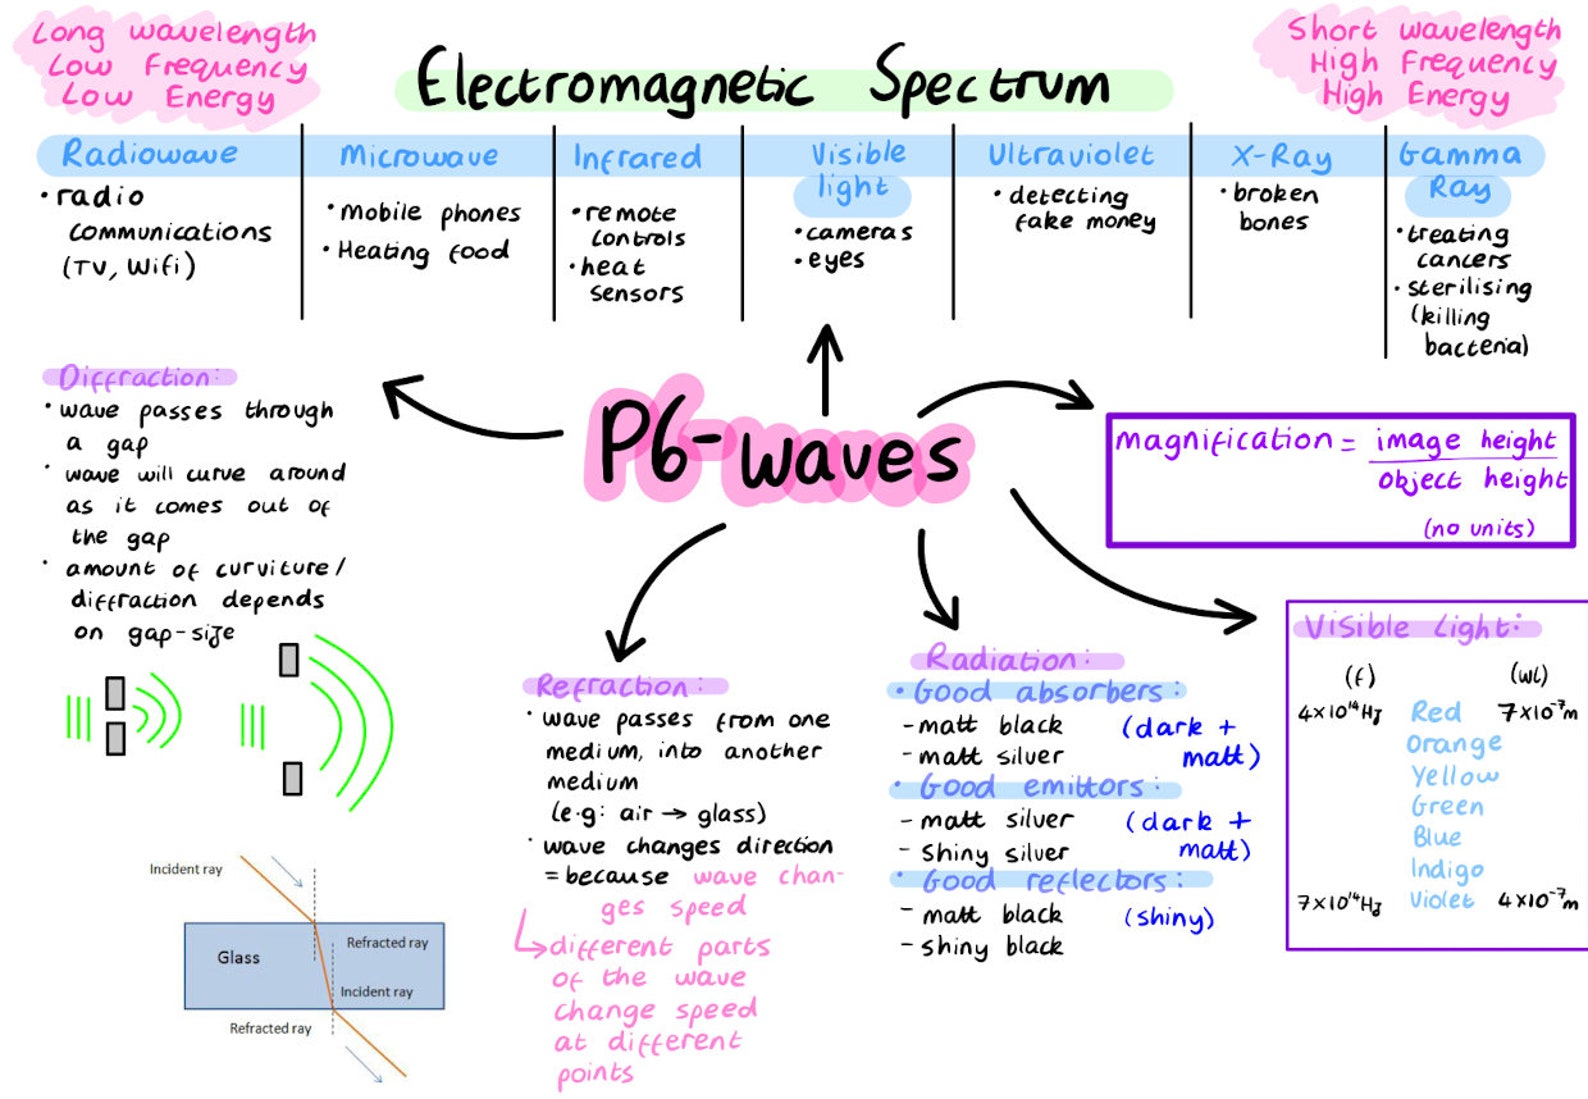 Long wavelength
Low Frequency
Low Energy
Electromagnetic Spectrum
Short wavelength
High Frequency
High Energy
Radiowave
• radio
communications
(TV, Wifi)
Microwave
• Mobile phones
• Heating food
Infrared
• remote
controls
• heat
sensors
Visible
light
• cameras
• eyes
Ultraviolet
• detecting
fake money
X-Ray
• broken
bones
Gamma
Ray
• treating
cancers
• sterilising
(killing
bacteria)
Diffraction:
• wave passes through
a gap
• wave will curve around
as it comes out of
the gap
• amount of curviture/
diffraction depends
on gap-size
P6-waves
magnification = image height
object height
(no units)
Refraction:
• wave passes from one
medium, into another
medium
(e.g: air → glass)
• wave changes direction
= because wave chan-
ges speed
↳ different parts
of the wave
change speed
at different
points
Incident ray
Glass
Refracted ray
Incident ray
Refracted ray
Radiation:
• Good absorbers:
- matt black (dark +
- matt silver matt)
• Good emittors:
- matt silver (dark +
- Shiny silver matt)
• Good reflectors:
- matt black (shiny)
- shiny black
Visible Light:
(f) (wl)
4×10¹⁴Hz Red 7×10⁻⁷m
Orange
Yellow
Green
Blue
Indigo
7×10¹⁴Hz Violet 4×10⁻⁷m